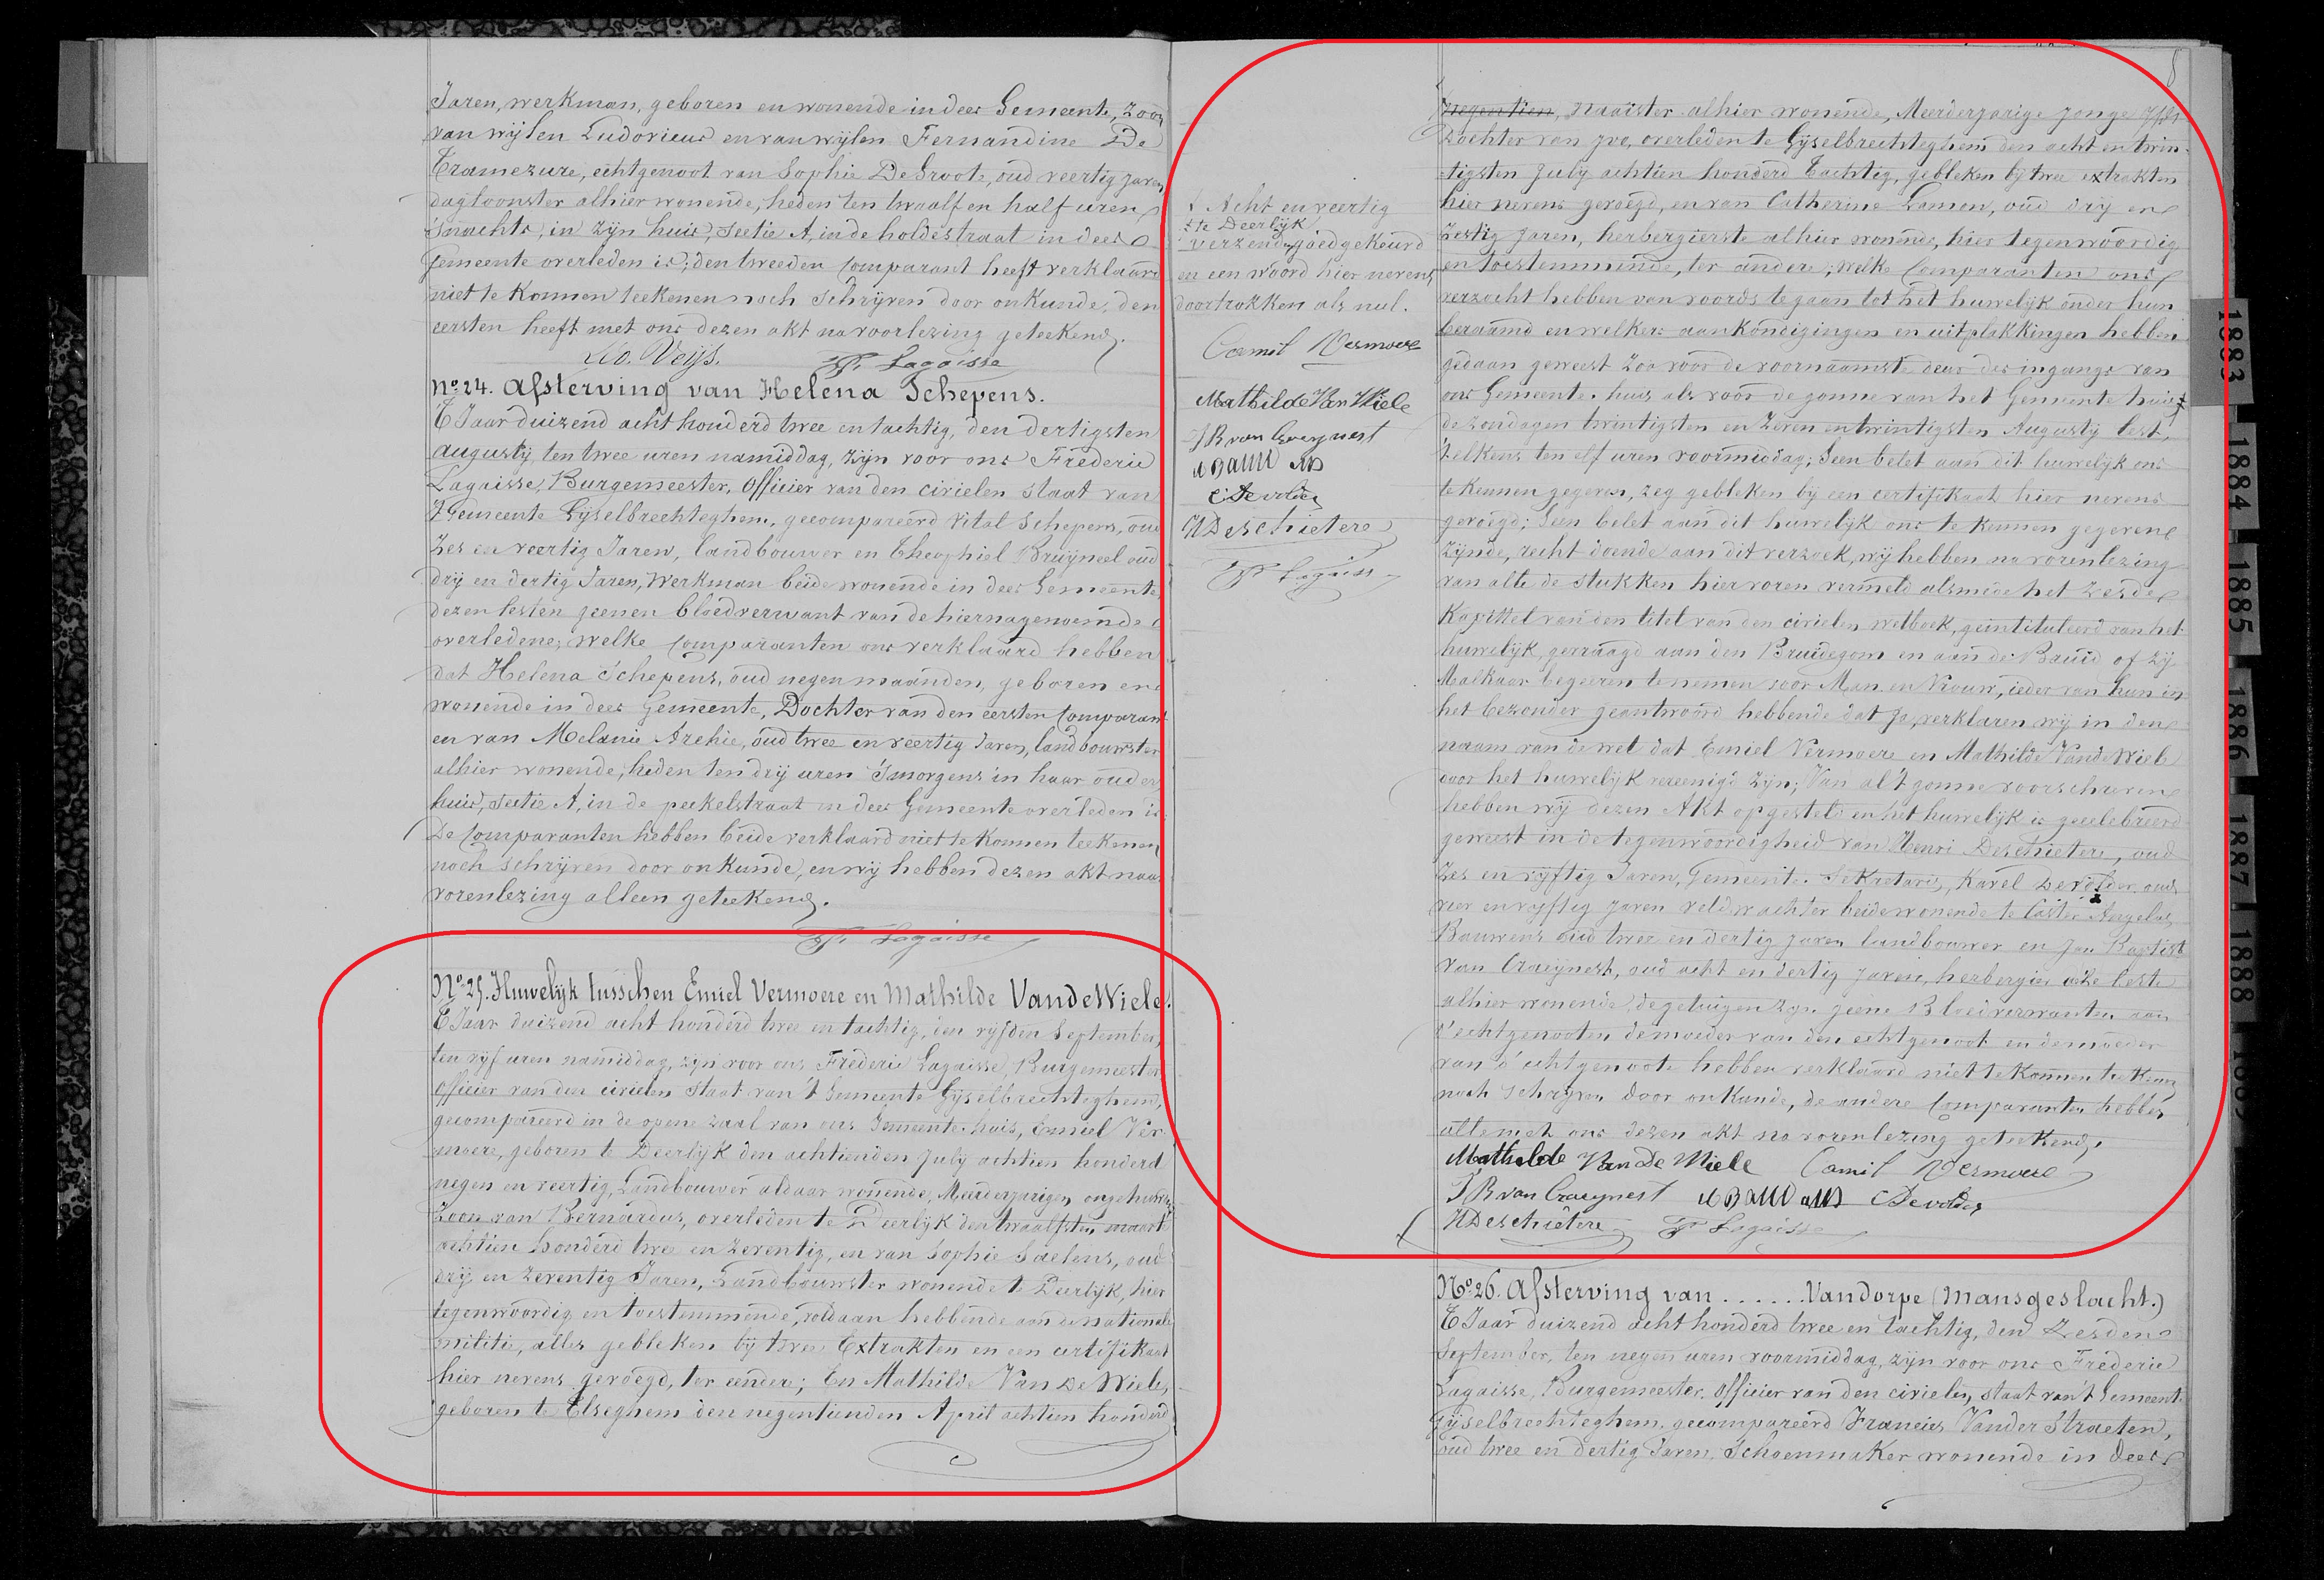 Jaren, werkman, geboren en wonende in deze Gemeente, Zoon
van wijlen Ludovicus en van wijlen Fernandine De
Tramezure, echtgenoot van Sophie DeGroote, oud veertig jaren,
dagloonster alhier wonende, heden ten twaalf en half uren
'snachts, in zijn huis, Sectie A, in de holdestraat in deze
Gemeente overleden is; den tweeden Comparant heeft verklaard
niet te konnen teekenen noch schrijven door onkunde, den
eersten heeft met ons dezen akt na voorlezing geteekend.
Leo. Veijs. Fr. Lagaisse
No. 24. Afsterving van Helena Schepens.
T'Jaar duizend acht honderd twee en tachtig, den dertigsten
augusty, ten twee uren namiddag, zijn voor ons Frederic
Lagaisse, Burgemeester, Officier van den civielen staat van
't Gemeente Gijselbrechteghem, gecompareerd Vital Schepens, oud
Zes en veertig Jaren, landbouwer en Theophiel Bruijneel oud
drij en dertig Jaren, Werkman beide wonende in deze Gemeente,
dezen lesten geenen bloedverwant van de hiernagenoemde
overledene, welke Comparanten ons verklaard hebben
dat Helena Schepens, oud negen maanden, geboren en
wonende in deze Gemeente, Dochter van den eersten Comparant
en van Melanie, oud twee en veertig Jaren, landbouwster
alhier wonende, heden ten drij uren 'smorgens in haar ouders
huis, Sectie A, in de peekelstraat in deze Gemeente overleden is
De Comparanten hebben beide verklaard niet te konnen teekenen
noch schrijven door onkunde, en wij hebben dezen akt naar
vorenlezing alleen geteekend.
Fr. Lagaisse
No. 25. Huwelijk tusschen Emiel Vermoere en Mathilde VandeWiele.
T'Jaar duizend acht honderd twee en tachtig, den vijfden September,
ten vijf uren namiddag, zijn voor ons Frederic Lagaisse, Burgemeester
Officier van den civielen staat van 't Gemeente Gijselbrechteghem,
gecompareerd in de opene zaal van ons Gemeente-huis, Emiel Ver-
moere, geboren te Deerlijk den achtienden July achtien honderd
negen en veertig, Landbouwer aldaar wonende, Meerderjarigen ongehuwden
Zoon van Bernardus, overleden te Deerlijk den twaalfsten maart
achtien honderd twee en zeventig, en van Sophie Saelens, oud
drij en zeventig Jaren, Landbouwster wonende te Deerlijk, hier
tegenwoordig en toestemmende, voldaan hebbende aan de nationale
militie, alles gebleken bij twee Extrakten en een certifikaat
hier nevens gevoegd, ter eendere; En Mathilde Van De Wiele,
geboren te Elseghem den negentienden April achtien honderd
Acht en veertig
te Deerlijk
verzending goedgekeurd
en een woord hier nevens
doortrokken als nul.
Camil Vermoere
Mathilde Van Wiele
J B van Craeynest
A Bauwens
C Devolder
H Deschietere
Fr. Lagaisse
8
negentien, naaister alhier wonende, Meerderjarige jonge
dochter van Ivo, overleden te Gijselbrechteghem den acht en twin-
tigsten July achtien honderd tachtig, gebleken bij twee extrakten
hier nevens gevoegd, en van Catherine Lamen, oud drij en
zestig Jaren, herbergierste alhier wonende, hier tegenwoordig
en toestemmende, ter andere; welke Comparanten ons
verzocht hebben van voords te gaan tot het huwelijk onder hun
beraamd en welkers aankondigingen en uitplakkingen hebben
gedaan geweest zoo voor de voornaamste deur des ingangs van
ons Gemeente-huis als voor de gonne van het Gemeente huis
de zondagen twintigsten en zeven en twintigsten Augusty lest,
telkens ten elf uren voormiddag; Geen belet aan dit huwelijk ons
te kennen gegeven, zeg gebleken bij een certifikaat hier nevens
gevoegd; Geen belet aan dit huwelijk ons te kennen gegeven
zijnde, recht doende aan dit verzoek, wij hebben na vorenlezing
van alle de stukken hier voren vermeld alsmede het zesde
Kapittel van den titel van den civielen wetboek, geintituleerd van het
huwelijk, gevraagd aan den Bruidegom en aan de Bruid of zij
Malkaar begeeren te nemen voor Man en Vrouw, ieder van hun in
het bezonder geantwoord hebbende dat ja, verklaren wij in den
naam van de wet dat Emiel Vermoere en Mathilde VandeWiele
door het huwelijk vereenigd zijn; Van al 't gonne voorschreven
hebben wij dezen Akt opgesteld en het huwelijk is gecelebreerd
geweest in de tegenwoordigheid van Henri Deschietere, oud
zes en vijftig Jaren, Gemeente-Sekretaris, Karel Devolder oud
vier en vijftig jaren veldwachter beide wonende te Caster Angelus
Bauwens oud twee en dertig jaren landbouwer en Jan Baptist
van Craeijnest, oud acht en dertig jaren, herbergier deze leste
alhier wonende, de getuigen zijn geene Bloedverwanten aan
d'echtgenooten, de moeder van den echtgenoot en de moeder
van d'echtgenoote hebben verklaard niet te konnen teekenen
noch schrijven door onkunde, de andere Comparanten hebben
alle met ons dezen akt na vorenlezing geteekend.
Mathilde Van De Wiele Camil Vermoere
J B van Craeynest A Bauwens C Devolder
H Deschietere Fr. Lagaisse
No. 26. Afsterving van ...... Vandorpe (Mansgeslacht.)
T'Jaar duizend acht honderd twee en tachtig, den Zesden
September, ten negen uren voormiddag, zijn voor ons Frederic
Lagaisse, Burgemeester, Officier van den civielen staat van 't Gemeente
Gijselbrechteghem, gecompareerd Francies Vander Straeten,
oud twee en dertig Jaren, Schoenmaker wonende in deze
1883
1884
1885
1886
1887
1888